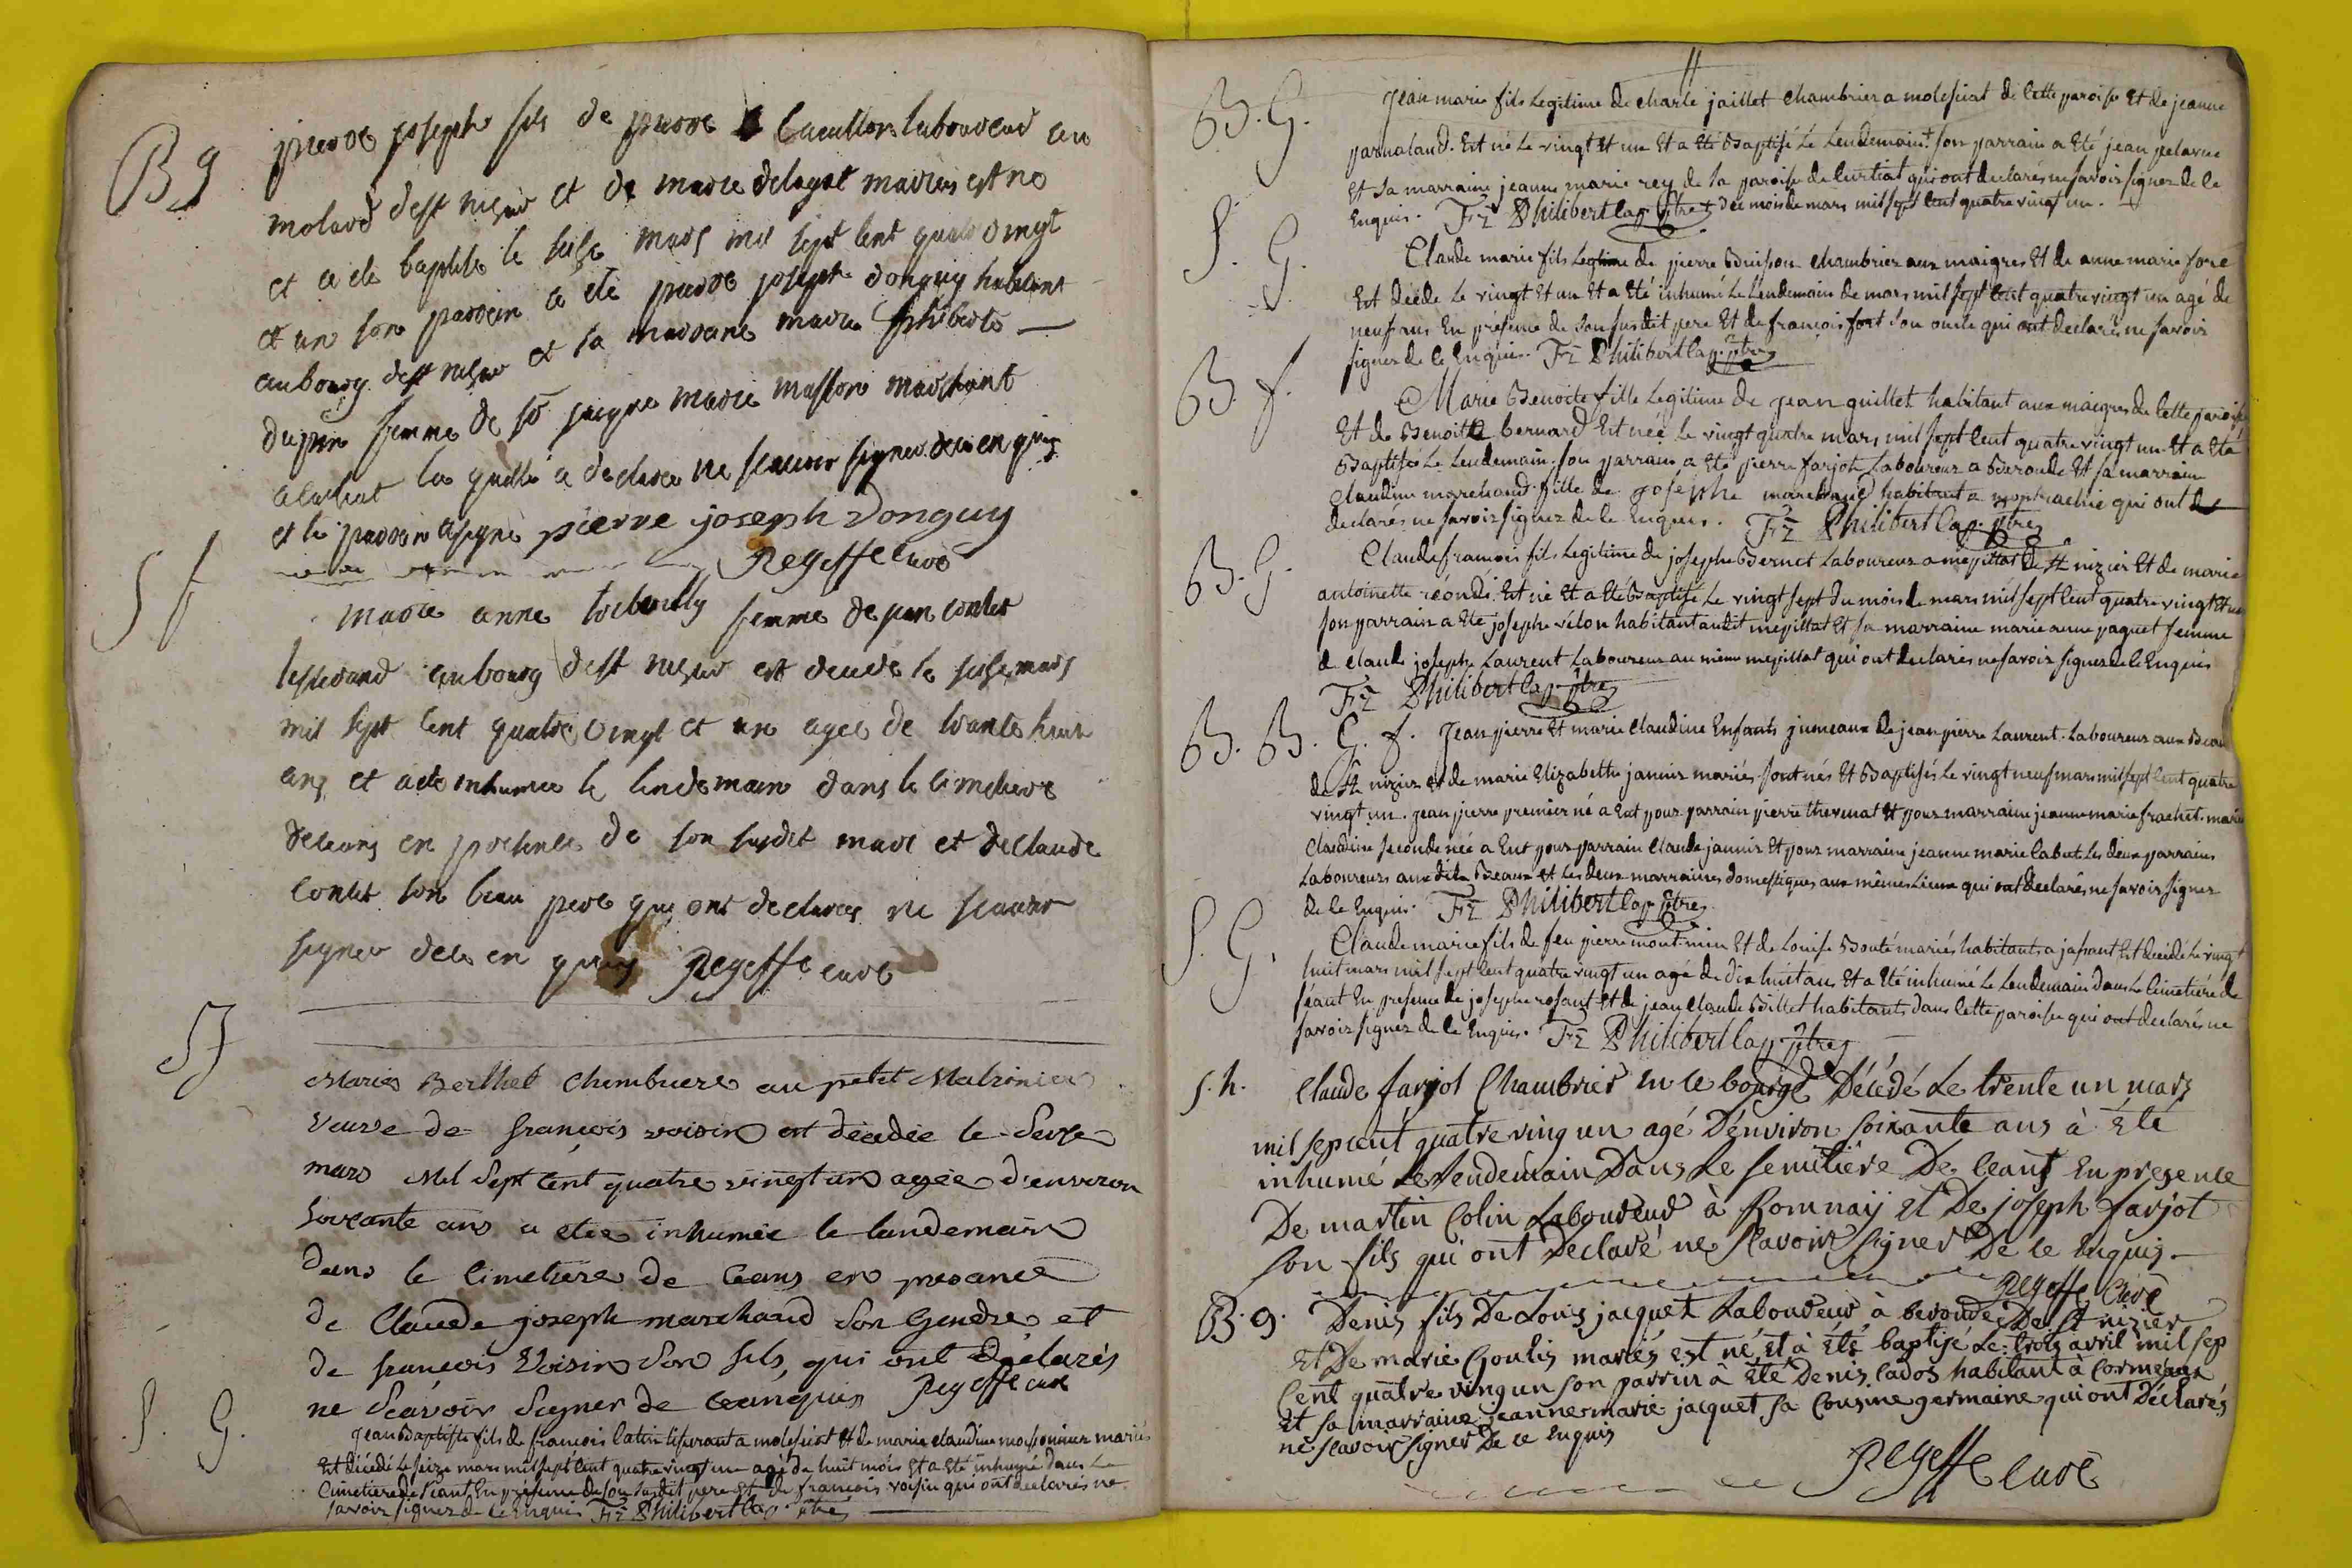 B g
pierre joseph fils de pierre Cacullon laboureur au
molard dest nisier et de marie delayat mariés est né
et a ete baptise le seise mars mil sept cent quatre vingt
et un son parrein a été pierre joseph donguy habitant
aubourg dest nisier et sa marreine marie philiberte
dupin femme de sr jacque marie masson marchant
la quelle a declaree ne scauoir signer de ce en quis
et le parrein a signé pierre joseph Donguy
Regeffe curé
S f
marie anne femme de jean contet
tisserand aubourg dest nisier est decedé le seise mars
mil sept cent quatre vingt et un agee de trante huit
ans et a ete inhumee le lendemain dans le cimetiere
de ceans en presence de son susdit mari et de Claude
Contet son beau pere qui ont declarés ne scauoir
signer de ce en quis Regeffe curé
S f
Marie Berthet Chambriere au petit Malzonier
veuve de françois voisin est décédée le seize
mars Mil Sept cent quatre vingt un agée d'environ
soixante ans a etée inhumée le landemain
dans le cimetiere de Ceans en presance
de Claude joseph marchand son Gendre et
de françois Voisin son fils, qui ont déclarés
ne Scavoir Signer de ce enquis Regeffe curé
S. G.
Jean Baptiste fils de francois Catin tisserant a molesiat et de marie claudine massonnier mariés
Est décédé le seize mars mil sept cent quatre vingt un agé de huit mois et a Eté inhumé dans Le
Cimetiere de Séant En présence de son susdit pere Et de francois voisin qui ont declarés ne
savoir signer de ce Enquis Fr. Philibert Cap. ptre
11
B. G.
Jean marie fils Legitime de charle jaillet chambrier a molesiat de Cette paroisse Et de jeanne
parnaland. Est né Le vingt Et un Et a Eté Baptisé Le Lendemain + son parrain a Eté jean pelarue
Et sa marraine jeanne marie rey de la paroisse de Curtiat qui ont declarés ne savoir signer de Ce
Enquis. Fr. Philibert Cap. ptre + du mois de mars mil sept cent quatre vingt un.
S. G.
Claude marie fils Legitime de pierre Buisson chambrier aux maigres Et de anne marie fore
Est décédé Le vingt Et un Et a Eté inhumé Le Lendemain de mars mil sept Cent quatre vingt un agé de
neuf ans En présence de son susdit pere Et de francois fort son oncle qui ont declarés ne savoir
signer de Ce Enquis. Fr. Philibert Cap. ptre
B. f.
Marie Benoite fille Legitime de jean guillet habitant aux maigres de Cette paroisse
Et de Benoitte bernard Est née le vingt quatre mars mil sept Cent quatre vingt un Et a Eté
Baptisée Le Lendemain son parrain a Eté pierre farjot Laboureur a Beronde Et sa marraine
claudine marchand fille de josephe marchand habitant a qui ont de
declarés ne savoir signer de Ce Enquis. Fr. Philibert Cap. ptre
B. G.
Claude francois fils Legitime de josephe Bernet Laboureur a mepillat de st nizier Et de marie
antoinette réondé. Est né Et a Eté Baptisé Le vingt sept du mois de mars mil sept Cent quatre vingt Et un
son parrain a Eté josephe vélon habitant audit mepillat Et sa marraine marie anne paquet femme
de claude josephe Laurent Laboureur au même mepillat qui ont declarés ne savoir signer de Ce Enquis
Fr. Philibert Cap. ptre
B. B. G. f.
Jean pierre Et marie claudine Enfants jumeaux de jean pierre Laurent. Laboureur aux Beaux
de st nizier et de marie Elizabette janin mariés sont nés Et Baptisés Le vingt neuf mars mil sept Cent quatre
vingt un. jean pierre premier né a Eut pour parrain pierre thevenat Et pour marraine jeanne marie frachet. marie
claudine seconde née a Eut pour parrain Claude jannin Et pour marraine jeanne marie Cabut Les deux parrains
Laboureurs aux dits Beaux et Les deux marraines domestiques aux mêmes Lieux qui ont declarés ne savoir signer
de Ce Enquis. Fr. Philibert Cap. ptre
S. G.
Claude marie fils de feu pierre montmin Et de Louise Bouté mariés habitants a jassant Est décédé Le vingt
huit mars mil sept Cent quatre vingt un agé de dix huit ans Et a Eté inhumé Le Lendemain dans Le Cimetiére de
séant En presence de josephe rosant Et de jean Claude Billet habitants dans Cette paroisse qui ont declarés ne
savoir signer de Ce Enquis. Fr. Philibert Cap. ptre
S. h.
Claude farjot Chambrier en ce bourg Décédé Le trente un mars
mil sepcent quatre ving un agé D'environ soixante ans à Été
inhumé Le Lendemain Dans Le semitière De Ceant En presence
De martin Colin Laboureur à Romnaÿ Et De joseph farjot
son fils qui ont Declaré ne Scavoir Signer De ce Enquis.
Regeffe Curé
B. g.
Denis fils De Louis jacquet Laboureur à beronde De St nizier
Et De marie Goulis mariés est né, et à Été baptisé Le trois avril mil sep
Cent quatre ving un son parrin à Eté Denis Cados habitant à Cormeaux
Et sa marraine jeanne marie jacquet sa Cousine germaine qui ont Déclarés
ne scavoir signer De ce Enquis
Regeffe curé